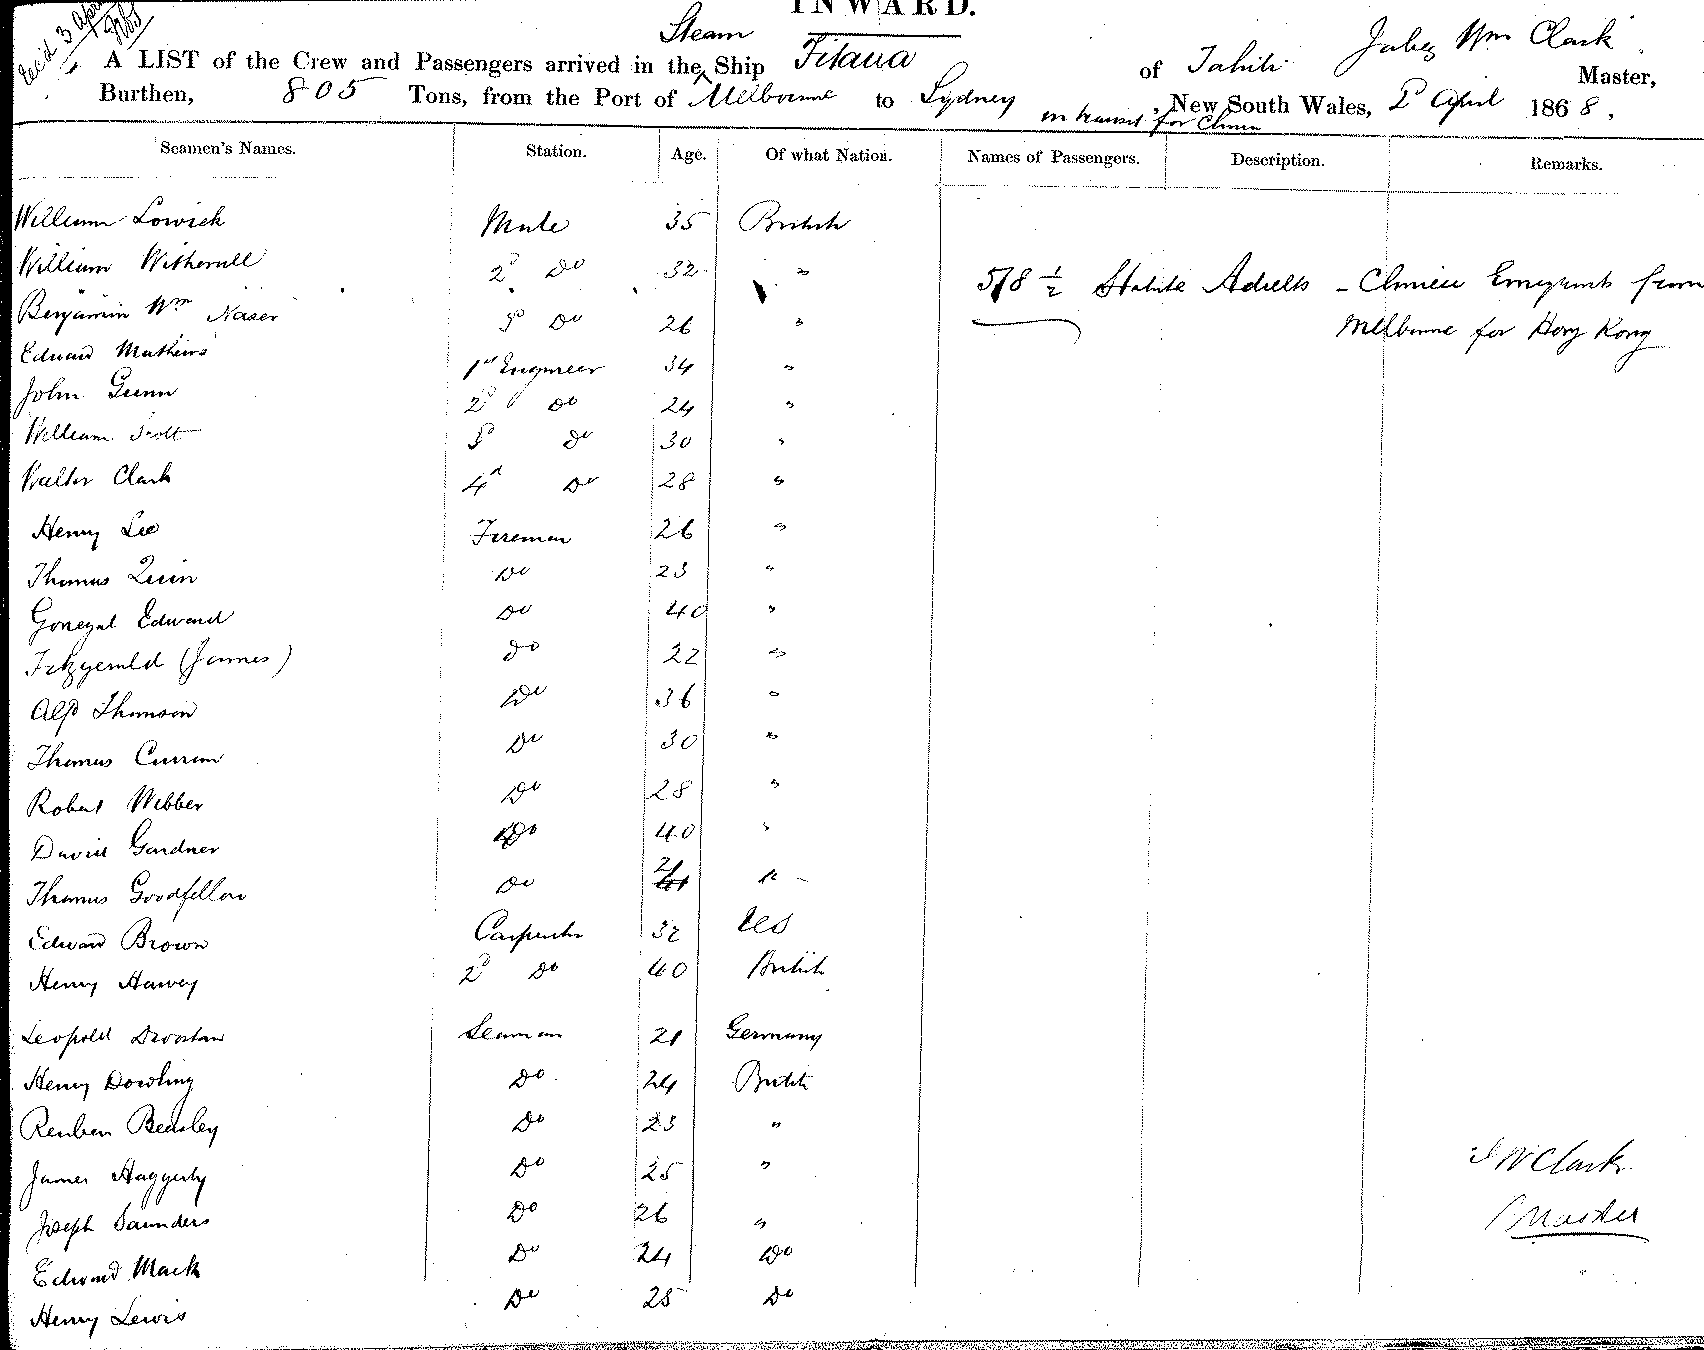 INWARD.
Rec'd 3 April
Steam
A LIST of the Crew and Passengers arrived in the ^ Ship Titana of Tahiti Jabez Wm Clark Master,
Burthen, 805 Tons, from the Port of Melbourne to Sydney, New South Wales, 2d April 1868.
in transit for China
Seamen's Names. Station. Age. Of what Nation. Names of Passengers. Description. Remarks.
William Lowick Mate 35 British
William Witherall 2d Do 32 "
578 1/2 Statute Adults - Chinese Emigrants from
Benjamin Wm Naser 3d Do 26 "
Melbourne for Hong Kong
Edward Mathews 1st Engineer 34 "
John Gunn 2d Do 24 "
William Scott 3d Do 30 "
Walter Clark 4th Do 28 "
Henry Lee Fireman 26 "
Thomas Quin Do 23 "
Gonegal Edward Do 40 "
Fitzgerald (James) Do 22 "
Alfd Thomson Do 36 "
Thomas Curran Do 30 "
Robert Webber Do 28 "
David Gardner Do 40 "
Thomas Goodfellow Do "
Edward Brown Carpenter 32 US
Henry Harvey 2d Do 40 British
Leopold Seaman 21 Germany
Henry Dowling Do 24 British
Reuben Beasley Do 23 "
James Haggerty Do 25 "
J W Clark
Joseph Saunders Do 26 "
Master
Edward Mack Do 24 Do
Henry Lewis Do 25 Do